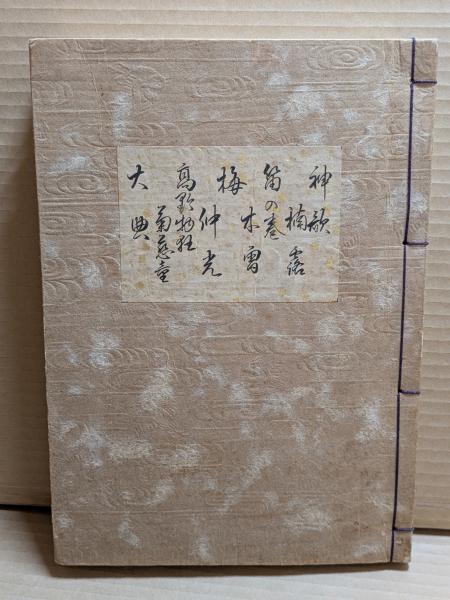 神歌
楠露
笛の巻
木曽
梅
仲光
高野物狂
菊慈童
大典